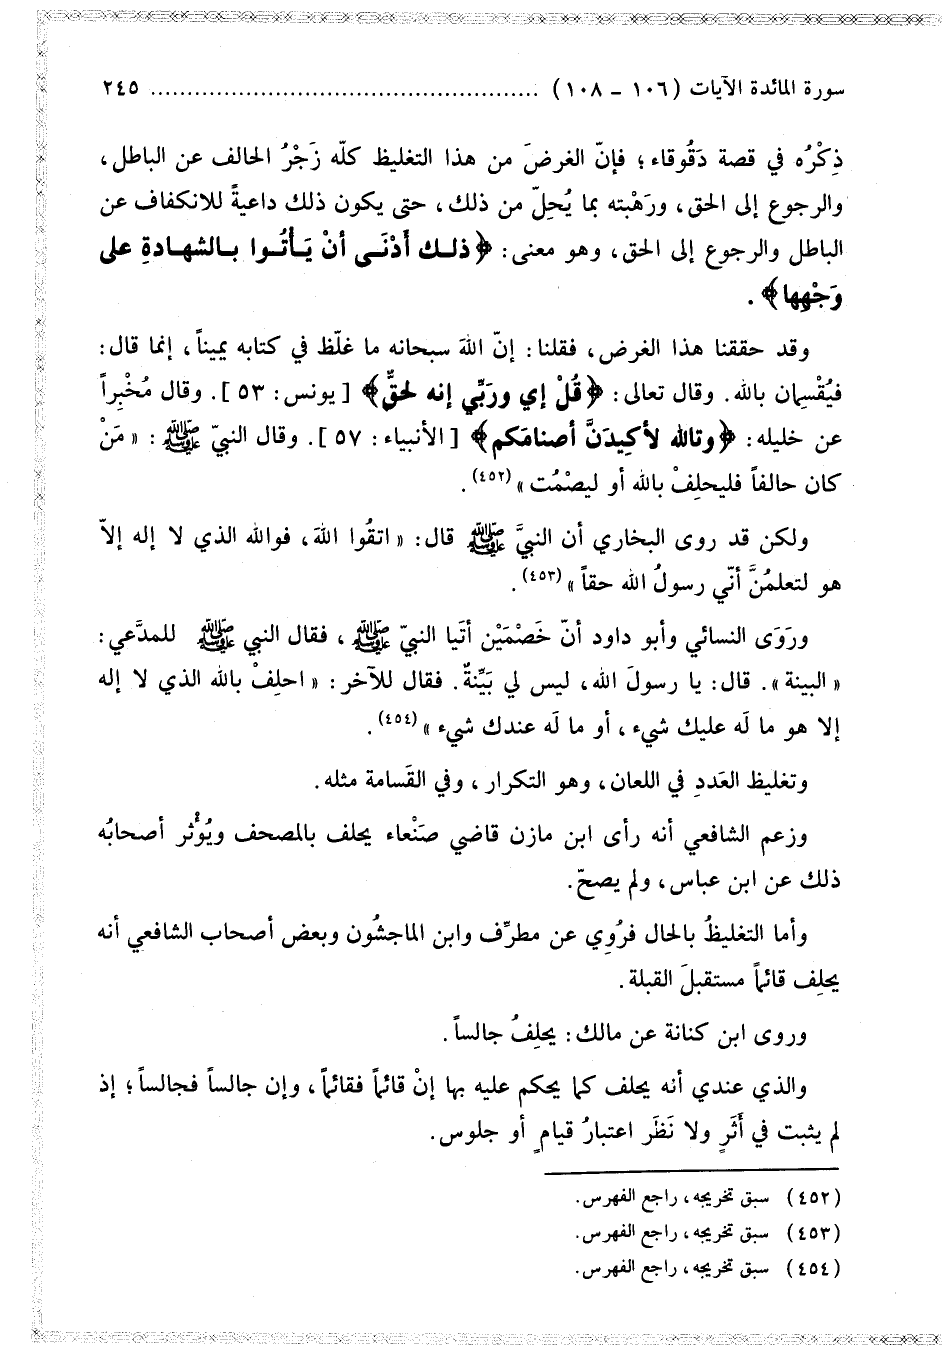 سورة المائدة الآيات (١٠٦ - ١٠٨) ..................................................... ٢٤٥
ذِكْرُه في قصة دَقُوقاء؛ فإنّ الغرضَ من هذا التغليظ كلّه زَجْرُ الحالف عن الباطل،
والرجوع إلى الحق، ورَهْبته بما يُحِلّ من ذلك، حتى يكون ذلك داعيةً للانكفاف عن
الباطل والرجوع إلى الحق، وهو معنى: ﴿ذلـك أدْنَـى أنْ يَـأتُـوا بـالشهـادةِ على
وَجْهِها﴾.
وقد حققنا هذا الغرض، فقلنا: إنّ اللهَ سبحانه ما غلّظ في كتابه يميناً، إنما قال:
فيُقْسِمان بالله. وقال تعالى: ﴿قُلْ إي ورَبِّي إنه لحقٌّ﴾ [يونس: ٥٣]. وقال مُخْبِراً
عن خليله: ﴿وتالله لأكِيدَنَّ أصنامَكم﴾ [الأنبياء: ٥٧]. وقال النبيّ ﷺ: «مَنْ
كان حالفاً فليحلِفْ بالله أو ليصْمُت»(٤٥٢).
ولكن قد روى البخاري أن النبيَّ ﷺ قال: «اتقُوا اللهَ، فوالله الذي لا إله إلاّ
هو لتعلمُنَّ أنّي رسولُ الله حقاً»(٤٥٣).
ورَوَى النسائي وأبو داود أنّ خَصْمَيْن أتَيا النبيّ ﷺ، فقال النبي ﷺ للمدَّعي:
«البينة». قال: يا رسولَ الله، ليس لي بَيِّنةٌ. فقال للآخر: «احلِفْ بالله الذي لا إله
إلا هو ما لَه عليك شيء، أو ما لَه عندك شيء»(٤٥٤).
وتغليظ العَددِ في اللعان، وهو التكرار، وفي القَسامة مثله.
وزعم الشافعي أنه رأى ابن مازن قاضي صَنْعاء يحلف بالمصحف ويُؤْثر أصحابُه
ذلك عن ابن عباس، ولم يصحّ.
وأما التغليظُ بالحال فرُوِي عن مطرِّف وابن الماجشُون وبعض أصحاب الشافعي أنه
يحلِف قائماً مستقبلَ القبلة.
وروى ابن كنانة عن مالك: يحلِفُ جالساً.
والذي عندي أنه يحلف كما يحكم عليه بها إنْ قائماً فقائماً، وإن جالساً فجالساً؛ إذ
لم يثبت في أَثَرٍ ولا نَظَر اعتبارُ قيامٍ أو جلوس.
(٤٥٢) سبق تخريجه، راجع الفهرس.
(٤٥٣) سبق تخريجه، راجع الفهرس.
(٤٥٤) سبق تخريجه، راجع الفهرس.